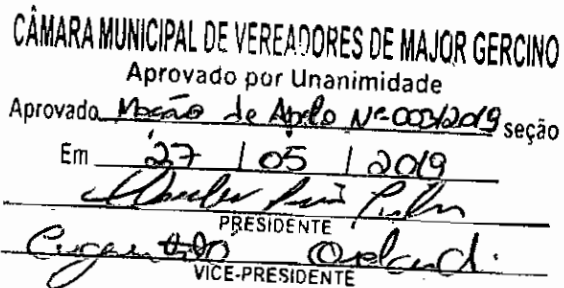 CÂMARA MUNICIPAL DE VEREADORES DE MAJOR GERCINO
Aprovado por Unanimidade
Aprovado Moção de Apelo Nº 003/2019 seção
Em 27 | 05 | 2019
PRESIDENTE
VICE-PRESIDENTE